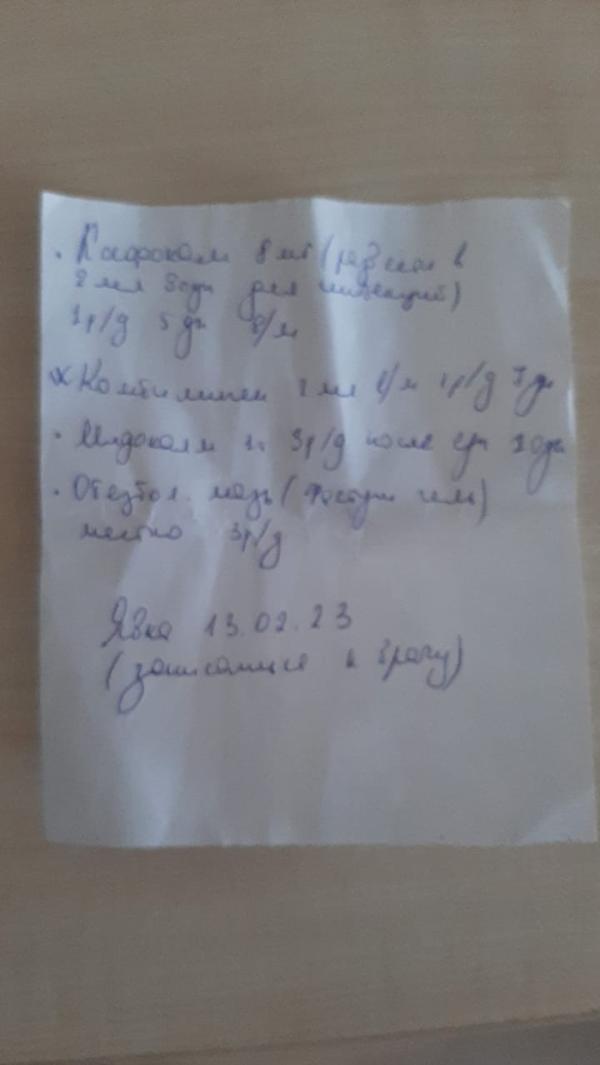 . Ксефокам 8 мг (развести в
2 мл воды для инъекций)
1р/д 5 дн в/м
Комбилипен 2 мл в/м 1р/д
. Мидокалм 3р/д после еды 10дн
. мазь (Фастум гель)
местно 3р/д
Явка 13.02.23
(записаться к врачу)